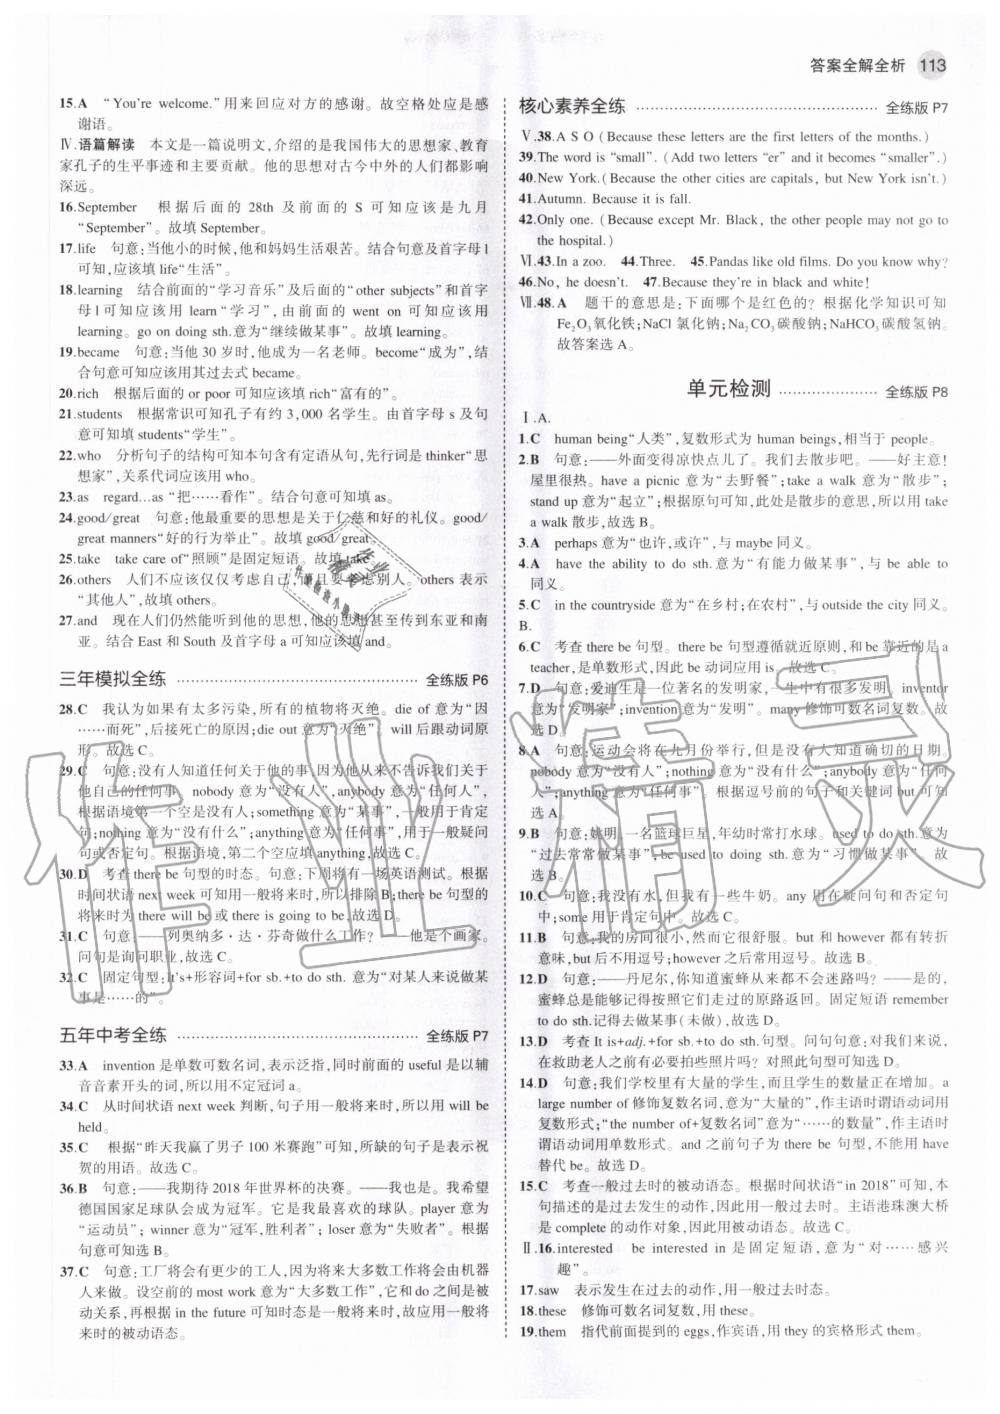 答案全解全析 113
15.A “You’re welcome.”用来回应对方的感谢。故空格处应是感
谢语。
Ⅳ.语篇解读 本文是一篇说明文,介绍的是我国伟大的思想家、教育
家孔子的生平事迹和主要贡献。他的思想对古今中外的人们都影响
深远。
16.September 根据后面的 28th 及前面的 S 可知应该是九月
“September”。故填 September。
17.life 句意:当他小的时候,他和妈妈生活艰苦。结合句意及首字母 l
可知,应该填 life“生活”。
18.learning 结合前面的“学习音乐”及后面的“other subjects”和首字
母 l 可知应该用 learn“学习”,由前面的 went on 可知应该用
learning。go on doing sth.意为“继续做某事”。故填 learning。
19.became 句意:当他 30 岁时,他成为一名老师。become“成为”,结
合句意可知应该用其过去式 became。
20.rich 根据后面的 or poor 可知应该填 rich“富有的”。
21.students 根据常识可知孔子有约 3,000 名学生。由首字母 s 及句
意可知填 students“学生”。
22.who 分析句子的结构可知本句含有定语从句,先行词是 thinker“思
想家”,关系代词应该用 who。
23.as regard…as “把……看作”。结合句意可知填 as。
24.good/great 句意:他最重要的思想是关于仁慈和好的礼仪。good/
great manners“好的行为举止”。故填 good/great。
25.take take care of“照顾”是固定短语。故填 take。
26.others 人们不应该仅仅考虑自己,而且要考虑别人。others 表示
“其他人”,故填 others。
27.and 现在人们仍然能听到他的思想,他的思想甚至传到东亚和南
亚。结合 East 和 South 及首字母 a 可知应该填 and。
三年模拟全练 全练版 P6
28.C 我认为如果有太多污染,所有的植物将灭绝。die of 意为“因
……而死”,后接死亡的原因;die out 意为“灭绝”。will 后跟动词原
形。故选 C。
29.C 句意:没有人知道任何关于他的事,因为他从来不告诉我们关于
他自己的任何事。nobody 意为“没有人”,anybody 意为“任何人”,
根据语境第一个空应是没有人;something 意为“某事”,一般用于肯定
句;nothing 意为“没有什么”;anything 意为“任何事”,用于一般疑问
句或否定句。根据语境,第二个空应填 anything,故选 C。
30.D 考查 there be 句型的时态。句意:下周将有一场英语测试。根据
时间状语 next week 可知用一般将来时,所以排除 B;there be 句型的
将来时为 there will be 或 there is going to be,故选 D。
31.C 句意:——列奥纳多·达·芬奇做什么工作？——他是个画家。
问句是询问职业,故选 C。
32.C 固定句型:It’s+形容词+for sb.+to do sth. 意为“对某人来说做某
事是……的”。
五年中考全练 全练版 P7
33.A invention 是单数可数名词,表示泛指,同时前面的 useful 是以辅
音音素开头的词,所以用不定冠词 a。
34.C 从时间状语 next week 判断,句子用一般将来时,所以用 will be
held。
35.C 根据“昨天我赢了男子 100 米赛跑”可知,所缺的句子是表示祝
贺的用语。故选 C。
36.B 句意:——我期待 2018 年世界杯的决赛。——我也是。我希望
德国国家足球队会成为冠军。它是我最喜欢的球队。player 意为
“运动员”; winner 意为“冠军,胜利者”; loser 意为“失败者”。根据
句意可知选 B。
37.C 句意:工厂将会有更少的工人,因为将来大多数工作将会由机器
人来做。设空前的 most work 意为“大多数工作”,它和 do 之间是被
动关系,再根据 in the future 可知时态是一般将来时,故应用一般将
来时的被动语态。
核心素养全练 全练版 P7
Ⅴ.38.A S O (Because these letters are the first letters of the months.)
39.The word is “small”. (Add two letters “er” and it becomes “smaller”.)
40.New York.(Because the other cities are capitals, but New York isn’t.)
41.Autumn. Because it is fall.
42.Only one. (Because except Mr. Black, the other people may not go to
the hospital.)
Ⅵ.43.In a zoo. 44.Three. 45.Pandas like old films. Do you know why?
46.No, he doesn’t. 47.Because they’re in black and white!
Ⅶ.48.A 题干的意思是:下面哪个是红色的? 根据化学知识可知
Fe₂O₃氧化铁;NaCl 氯化钠;Na₂CO₃碳酸钠;NaHCO₃碳酸氢钠。
故答案选 A。
单元检测 全练版 P8
Ⅰ.A.
1.C human being“人类”,复数形式为 human beings,相当于 people。
2.B 句意:——外面变得凉快点儿了。我们去散步吧。——好主意!
屋里很热。have a picnic 意为“去野餐”;take a walk 意为“散步”;
stand up 意为“起立”;根据原句可知,此处是散步的意思,所以用 take
a walk 散步,故选 B。
3.A perhaps 意为“也许,或许”,与 maybe 同义。
4.A have the ability to do sth.意为“有能力做某事”,与 be able to
同义。
5.C in the countryside 意为“在乡村;在农村”,与 outside the city 同义。
B.
6.C 考查 there be 句型。there be 句型遵循就近原则,和 be 靠近的是 a
teacher,是单数形式,因此 be 动词应用 is。故选 C。
7.D 句意:爱迪生是一位著名的发明家,一生中有很多发明。inventor
意为“发明家”;invention 意为“发明”。many 修饰可数名词复数。故
选 D。
8.A 句意:运动会将在九月份举行,但是没有人知道确切的日期。
nobody 意为“没有人”;nothing 意为“没有什么”;anybody 意为“任何
人”;anything 意为“任何事”。根据逗号前的句子和关键词 but 可知
选 A。
9.B 句意:姚明,一名篮球巨星,年幼时常打水球。used to do sth.意为
“过去常常做某事”;be used to doing sth.意为“习惯做某事”。故
选 B。
10.C 句意:我没有水,但我有一些牛奶。any 用在疑问句和否定句
中;some 用于肯定句中。故选 C。
11.B 句意:我的房间很小,然而它很舒服。but 和 however 都有转折
意味,but 后不用逗号;however 后常用逗号。故选 B。
12.D 句意:——丹尼尔,你知道蜜蜂从来都不会迷路吗? ——是的,
蜜蜂总是能够记得按照过去的原路返回。固定短语 remember
to do sth.记得去做某事(未做),故选 D。
13.D 考查 It is+adj.+for sb.+to do sth.句型。问句句意:你认为
在救助老人之前有必要拍些照片吗? 对照此句型可知选 D。
14.D 句意:我们学校里有大量的学生,而且学生的数量正在增加。a
large number of 修饰复数名词,意为“大量的”,作主语时谓语动词用
复数形式;“the number of+复数名词”意为“……的数量”,作主语时
谓语动词用单数形式。and 之前句子为 there be 句型,不能用 have
替代 be。故选 D。
15.C 考查一般过去时的被动语态。根据时间状语“in 2018”可知,本
句描述的是过去发生的动作,因此用一般过去时。主语港珠澳大桥
是 complete 的动作对象,因此用被动语态。故选 C。
Ⅱ.16.interested be interested in 是固定短语,意为“对……感兴
趣”。
17.saw 表示发生在过去的动作,用一般过去时态。
18.these 修饰可数名词复数,用 these。
19.them 指代前面提到的 eggs,作宾语,用 they 的宾格形式 them。
作业精灵